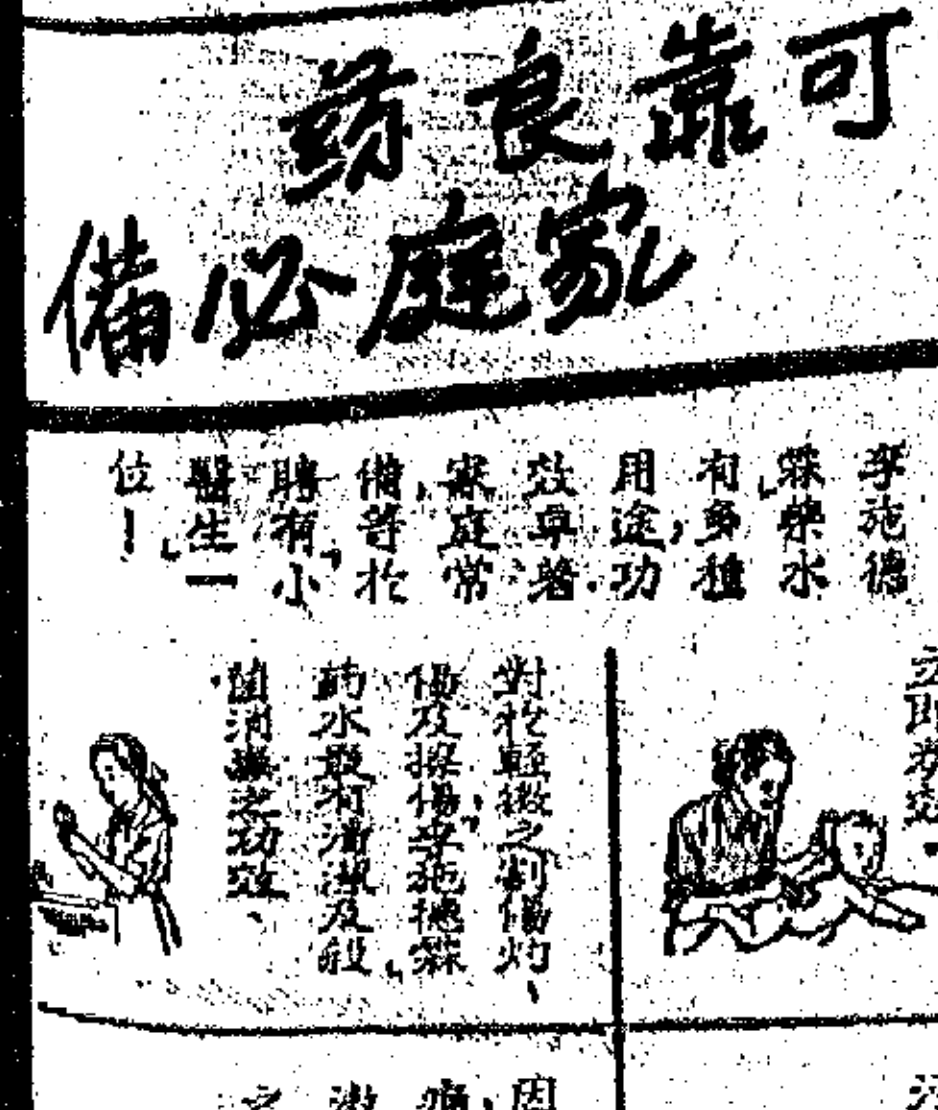 可靠良药
家庭必備
李施德
霖藥水
有多種
用途，功
效卓著．
家庭常
備，等於
聘有「小
醫生」一
位！
立即為您
對於輕微之割傷、灼
傷及擦傷，李施德霖
葯水最有清潔及殺
菌消毒之功效、
因